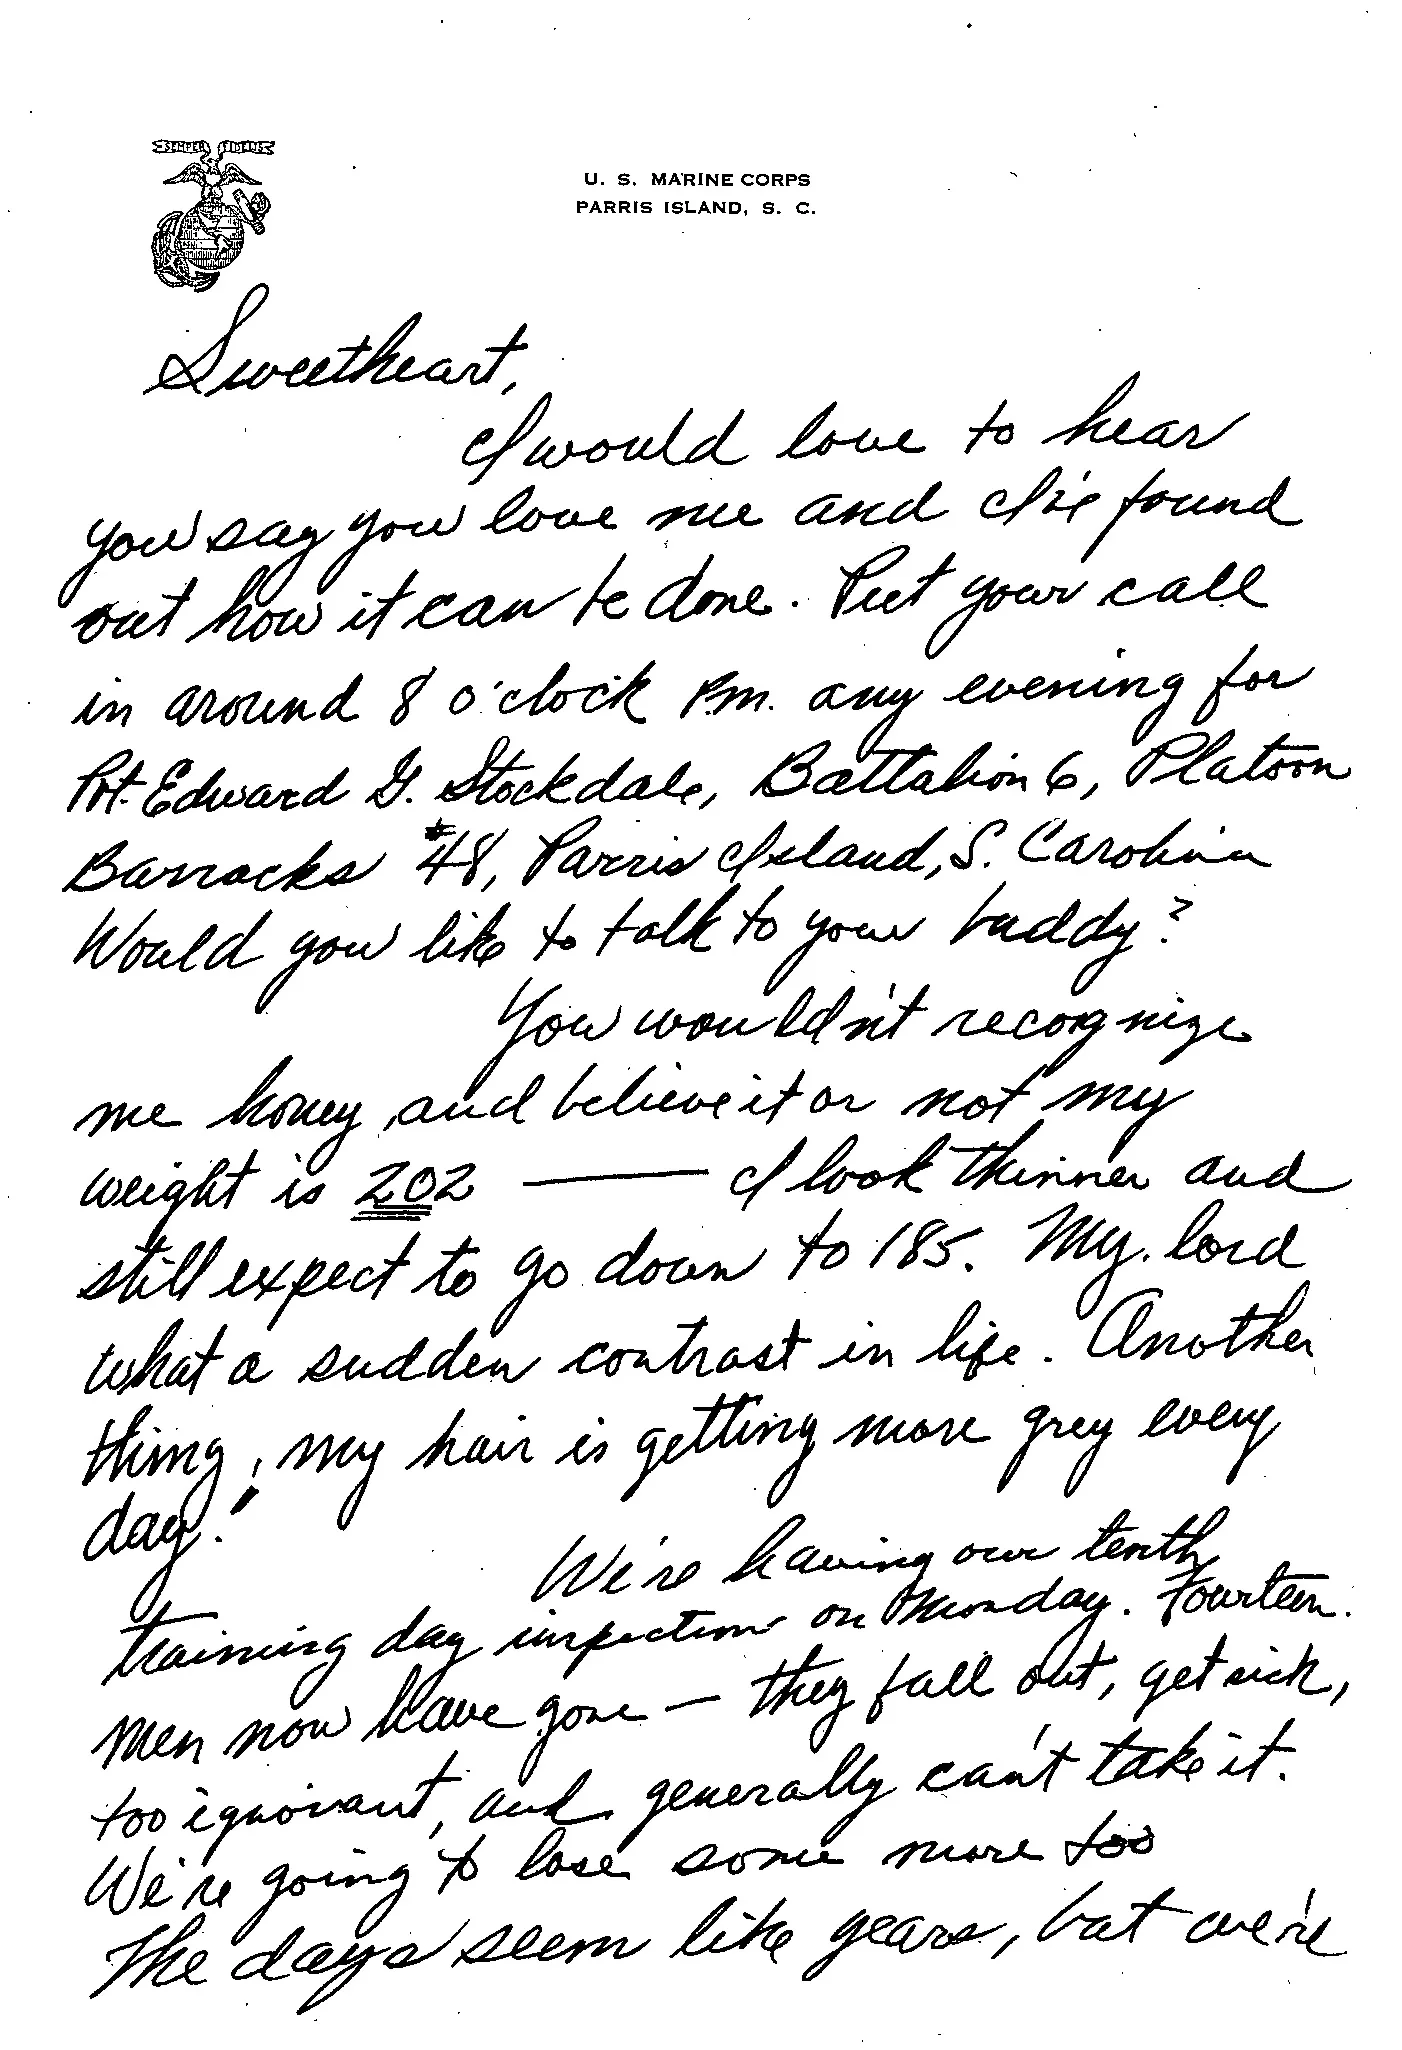 SEMPER FIDELIS
U. S. MARINE CORPS
PARRIS ISLAND, S. C.
Sweetheart,
I would love to hear
you say you love me and I've found
out how it can be done. Put your call
in around 8 o'clock P.m. any evening for
Pvt. Edward G. Stockdale, Battalion 6, Platoon
Barracks #48, Parris Island, S. Carolina
Would you like to talk to your buddy?
You wouldn't recognize
me honey, and believe it or not my
weight is 202 — I look thinner and
still expect to go down to 185. My lord
what a sudden contrast in life. Another
thing, my hair is getting more grey every
day!"
We're having our tenth
training day inspection on Monday. Fourteen
men now have gone — they fall out, get sick,
too ignorant, and generally can't take it.
We're going to lose some more too
The days seem like years, but we're